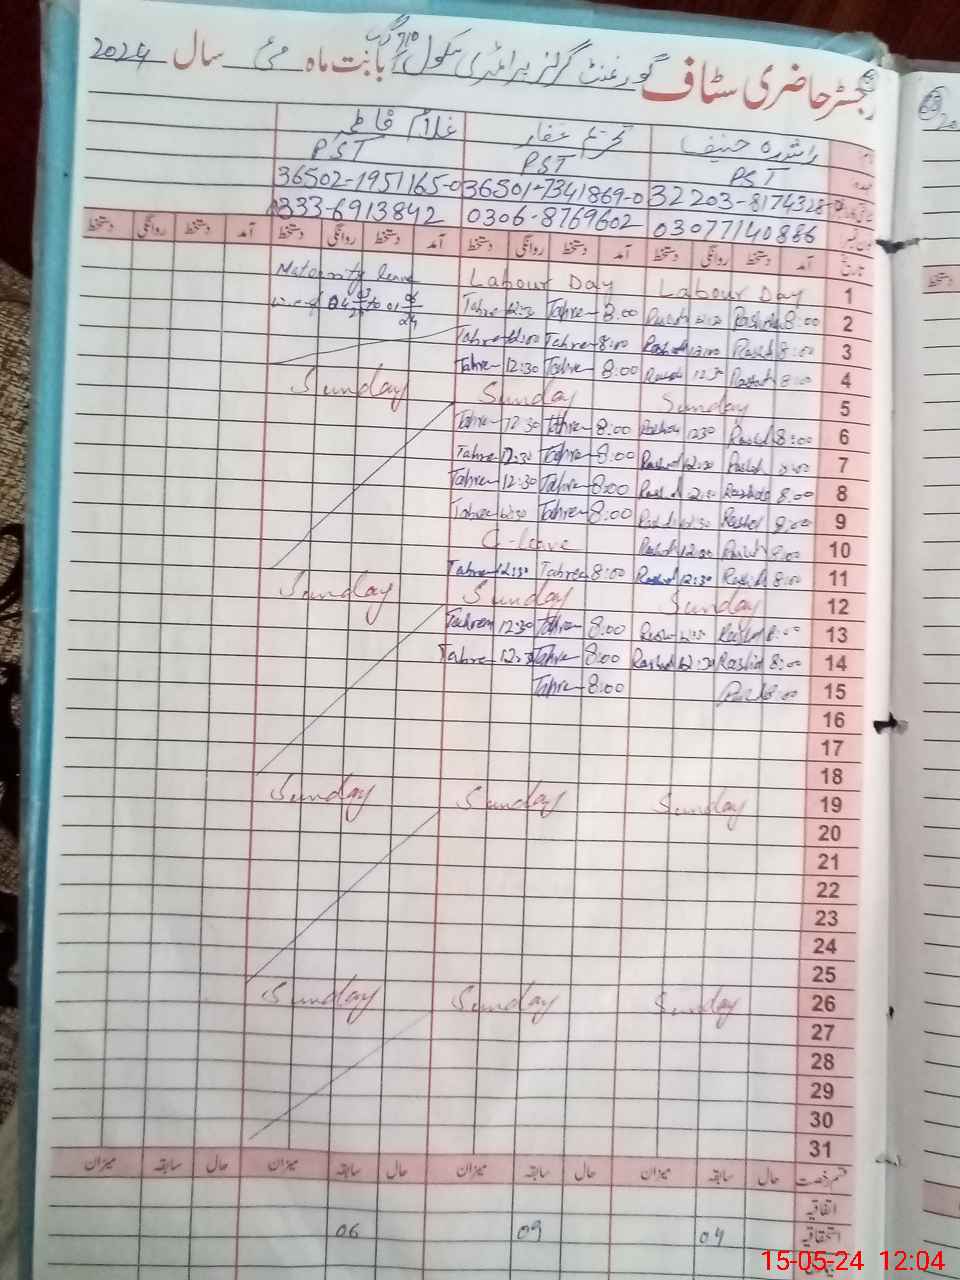 رجسٹر حاضری سٹاف گورنمنٹ گرلز پرائمری سکول بابت ماہ مئی سال 2024
راشدہ حنیف تحریم غفار غلام فاطمہ
PST PST PST
32203-8174328 36501-7341869-0 36502-1951165-0
03077140886 0306-8769602 0333-6913842
تاریخ آمد دستخط روانگی دستخط آمد دستخط روانگی دستخط آمد دستخط روانگی دستخط آمد دستخط روانگی دستخط
1 Labour Day Labour Day Maternity leave
2 8:00 8:00 Tahre 12:30 Tahre
3 8:00 Rashid 12:00 8:00 Tahre 12:00 Tahre
4 8:00 12:30 8:00 Tahre 12:30 Tahre
5 Sunday Sunday Sunday
6 8:00 Rashid 12:30 8:00 Tahre 12:30 Tahre
7 8:00 Rashid 12:30 8:00 Tahre 12:30 Tahre
8 8:00 Rashid 12:30 8:00 Tahre 12:30 Tahre
9 8:00 12:30 8:00 Tahre 12:30 Tahre
10 8:00 12:30 C-leave
11 8:00 Rashid 12:30 8:00 Tahre 12:30 Tahre
12 Sunday Sunday Sunday
13 8:00 8:00 Tahre 12:30 Tahrem
14 8:00 Rashid 12:30 Rashid 8:00 Tahre 12:30 Tahre
15 8:00 8:00 Tahre
16
17
18
19 Sunday Sunday Sunday
20
21
22
23
24
25
26 Sunday Sunday Sunday
27
28
29
30
31
قسم رخصت حال سابقہ میزان حال سابقہ میزان حال سابقہ میزان حال سابقہ میزان
اتفاقیہ
استحقاقیہ 04 09 06
15-05-24 12:04